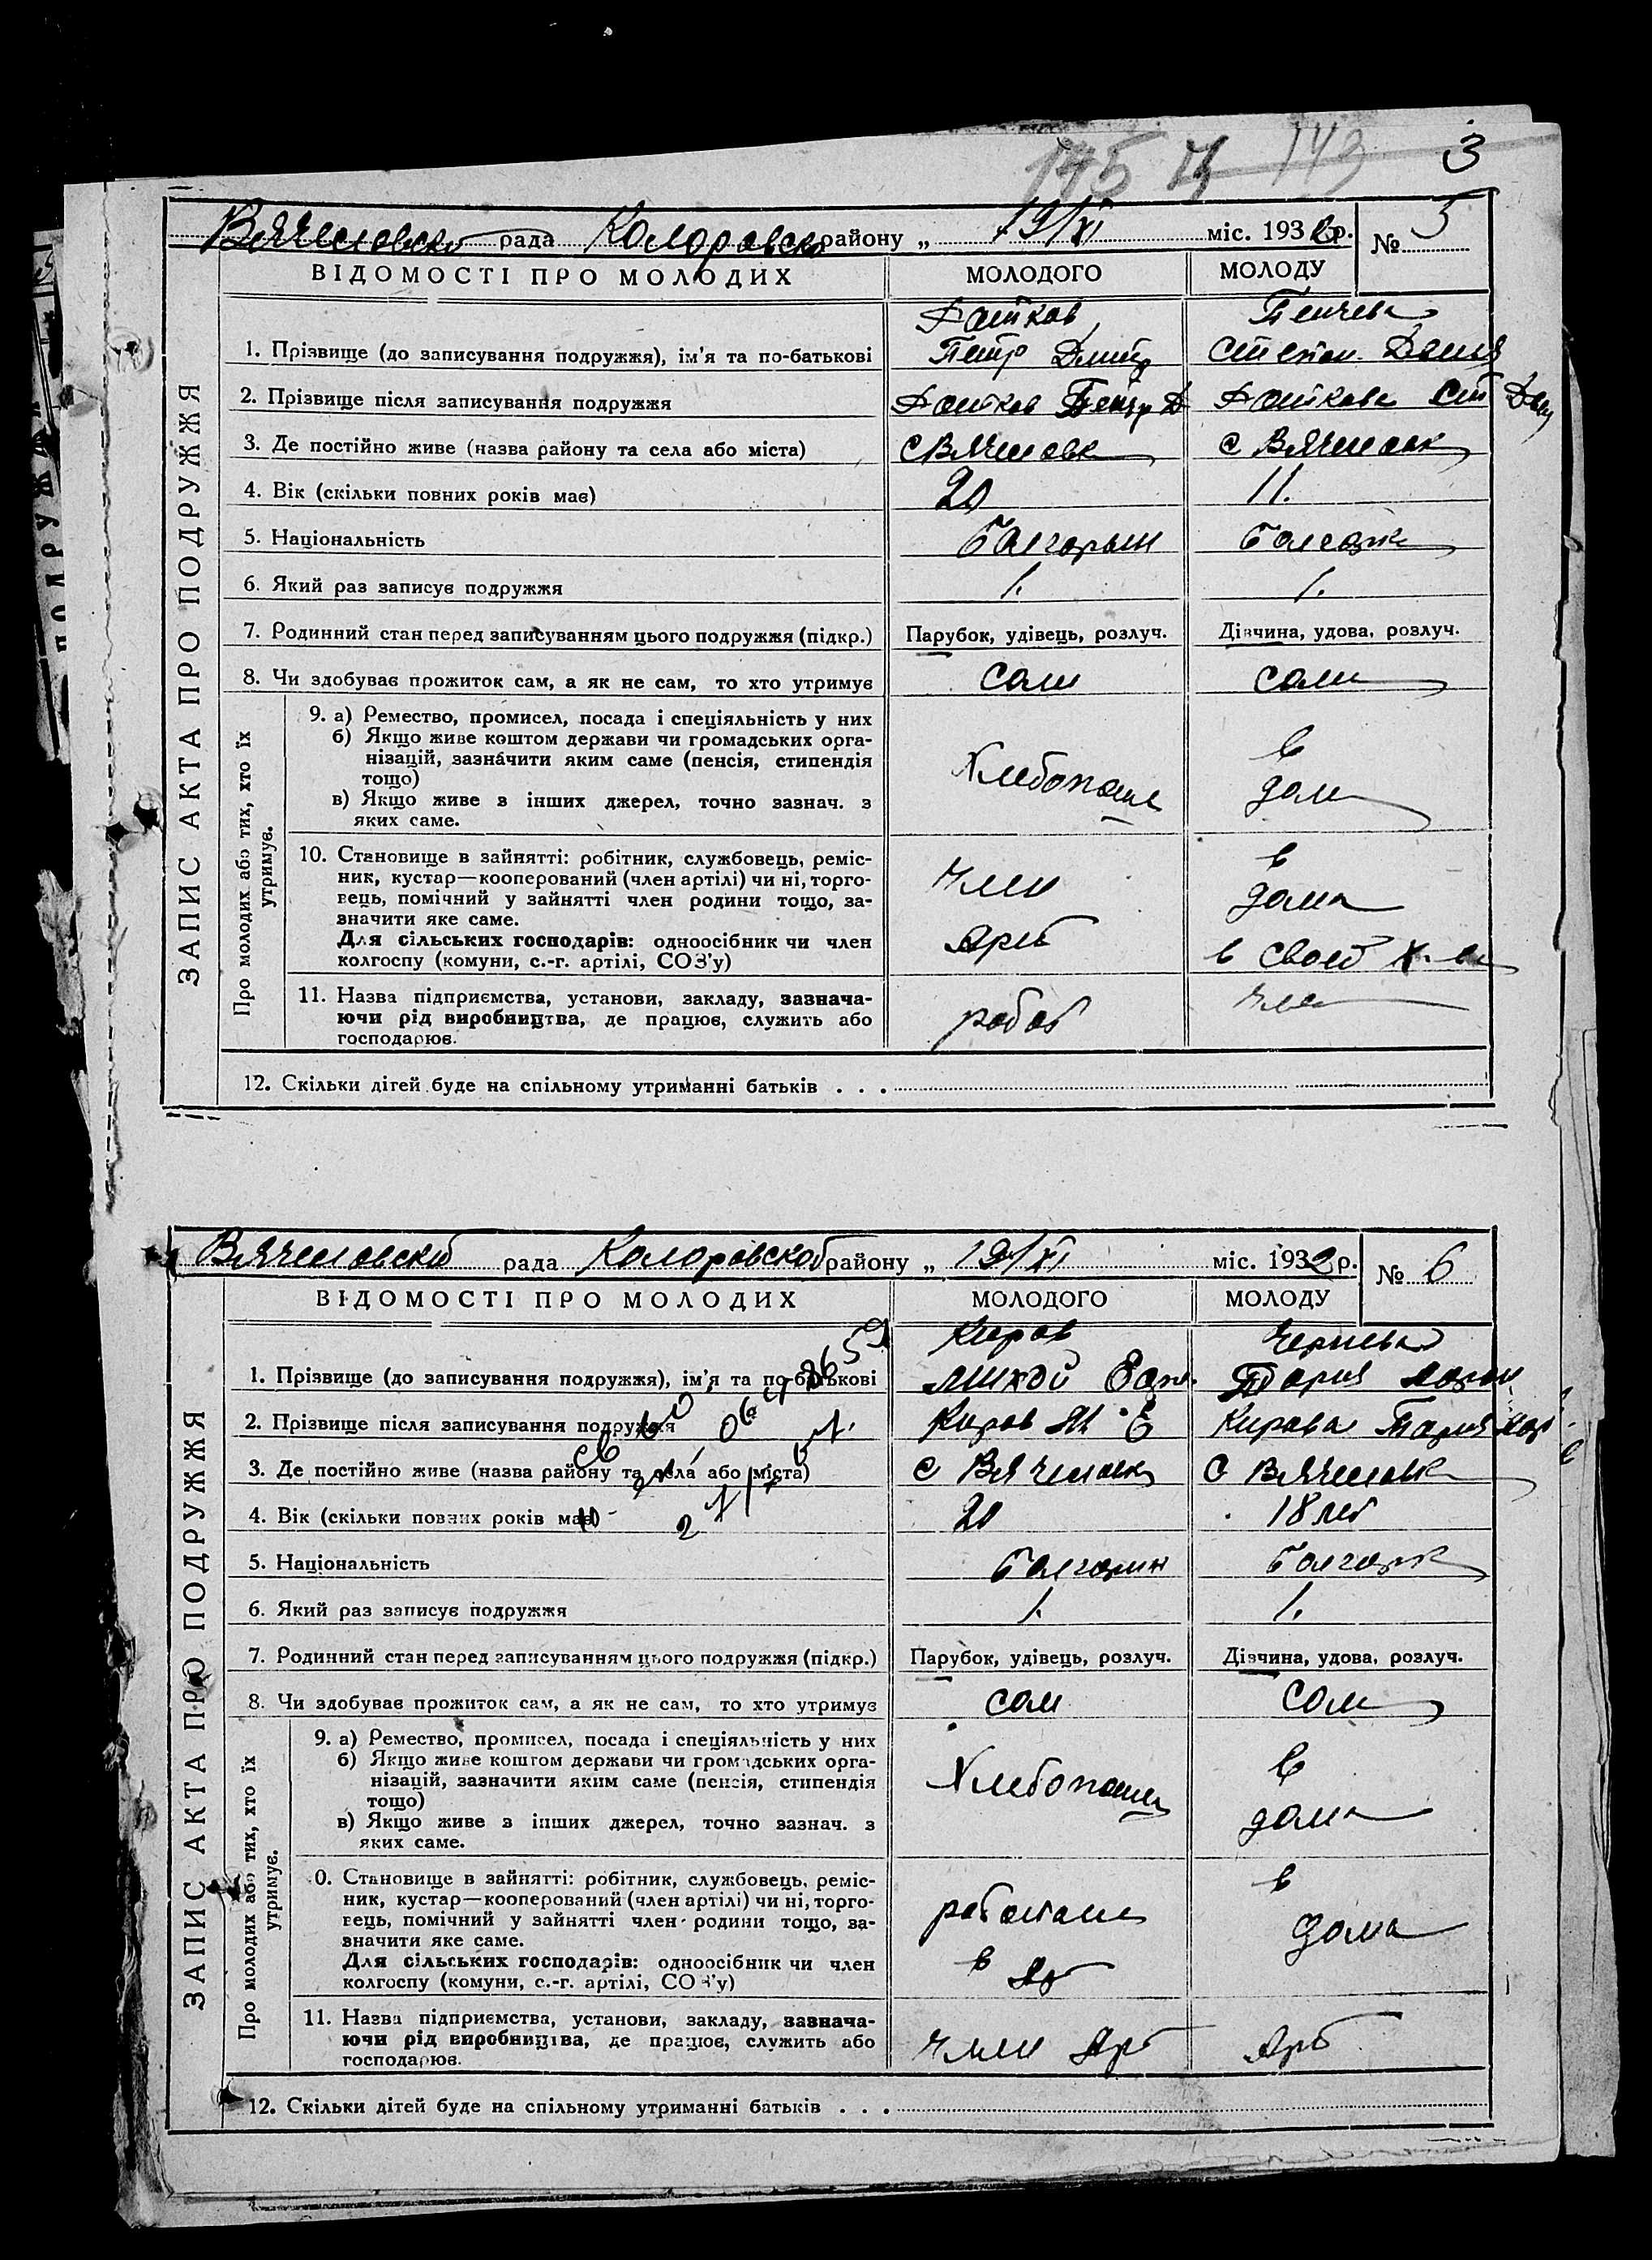 3
Вячеславско рада Коларовско району „ 19/XI міс. 1932 р. № 5
ВІДОМОСТІ ПРО МОЛОДИХ МОЛОДОГО МОЛОДУ
ЗАПИС АКТА ПРО ПОДРУЖЖЯ
1. Прізвище (до записування подружжя), ім'я та по-батькові Петр Дмитр
2. Прізвище після записування подружжя Петр Д
3. Де постійно живе (назва району та села або міста) с Вячеславк с Вячеславк
4. Вік (скільки повних років має) 20
5. Національність Болгарын Болгарк
6. Який раз записує подружжя 1. 1.
7. Родинний стан перед записуванням цього подружжя (підкр.) Парубок, удівець, розлуч. Дівчина, удова, розлуч.
8. Чи здобуває прожиток сам, а як не сам, то хто утримує сам сам
Про молодих або тих, хто їх
утримує.
9. а) Ремество, промисел, посада і спеціяльність у них
б) Якщо живе коштом держави чи громадських орга-
нізацій, зазначити яким саме (пенсія, стипендія
тощо)
в) Якщо живе з інших джерел, точно зазнач. з
яких саме.
Хлебопаше
в
дом
10. Становище в зайнятті: робітник, службовець, реміс-
ник, кустар—кооперований (член артілі) чи ні, торго-
вець, помічний у зайнятті член родини тощо, за-
значити яке саме.
Для сільських господарів: одноосібник чи член
колгоспу (комуни, с.-г. артілі, СОЗ'у)
член
Арт
в
дома
в своей
11. Назва підприємства, установи, закладу, зазнача-
ючи рід виробництва, де працює, служить або
господарює.
работ
12. Скільки дітей буде на спільному утриманні батьків . . .
Вячеславской рада Коларовской району „ 19/XI міс. 1932 р. № 6
ВІДОМОСТІ ПРО МОЛОДИХ МОЛОДОГО МОЛОДУ
ЗАПИС АКТА ПРО ПОДРУЖЖЯ
Киров
1. Прізвище (до записування подружжя), ім'я та по-батькові
2. Прізвище після записування подружжя Киров М Е Кирова
3. Де постійно живе (назва району та села або міста) с Вячеславк с Вячеславк
4. Вік (скільки повних років має) 20 18 лет
5. Національність Болгарин Болгарк
6. Який раз записує подружжя 1. 1.
7. Родинний стан перед записуванням цього подружжя (підкр.) Парубок, удівець, розлуч. Дівчина, удова, розлуч.
8. Чи здобуває прожиток сам, а як не сам, то хто утримує сам сам
Про молодих або тих, хто їх
утримує.
9. а) Ремество, промисел, посада і спеціяльність у них
б) Якщо живе коштом держави чи громадських орга-
нізацій, зазначити яким саме (пенсія, стипендія
тощо)
в) Якщо живе з інших джерел, точно зазнач. з
яких саме.
Хлебопаше
в
дома
0. Становище в зайнятті: робітник, службовець, реміс-
ник, кустар—кооперований (член артілі) чи ні, торго-
вець, помічний у зайнятті член родини тощо, за-
значити яке саме.
Для сільських господарів: одноосібник чи член
колгоспу (комуни, с.-г. артілі, СОЗ'у)
в
в
дома
11. Назва підприємства, установи, закладу, зазнача-
ючи рід виробництва, де працює, служить або
господарює.
член Арт Арт
12. Скільки дітей буде на спільному утриманні батьків . . .